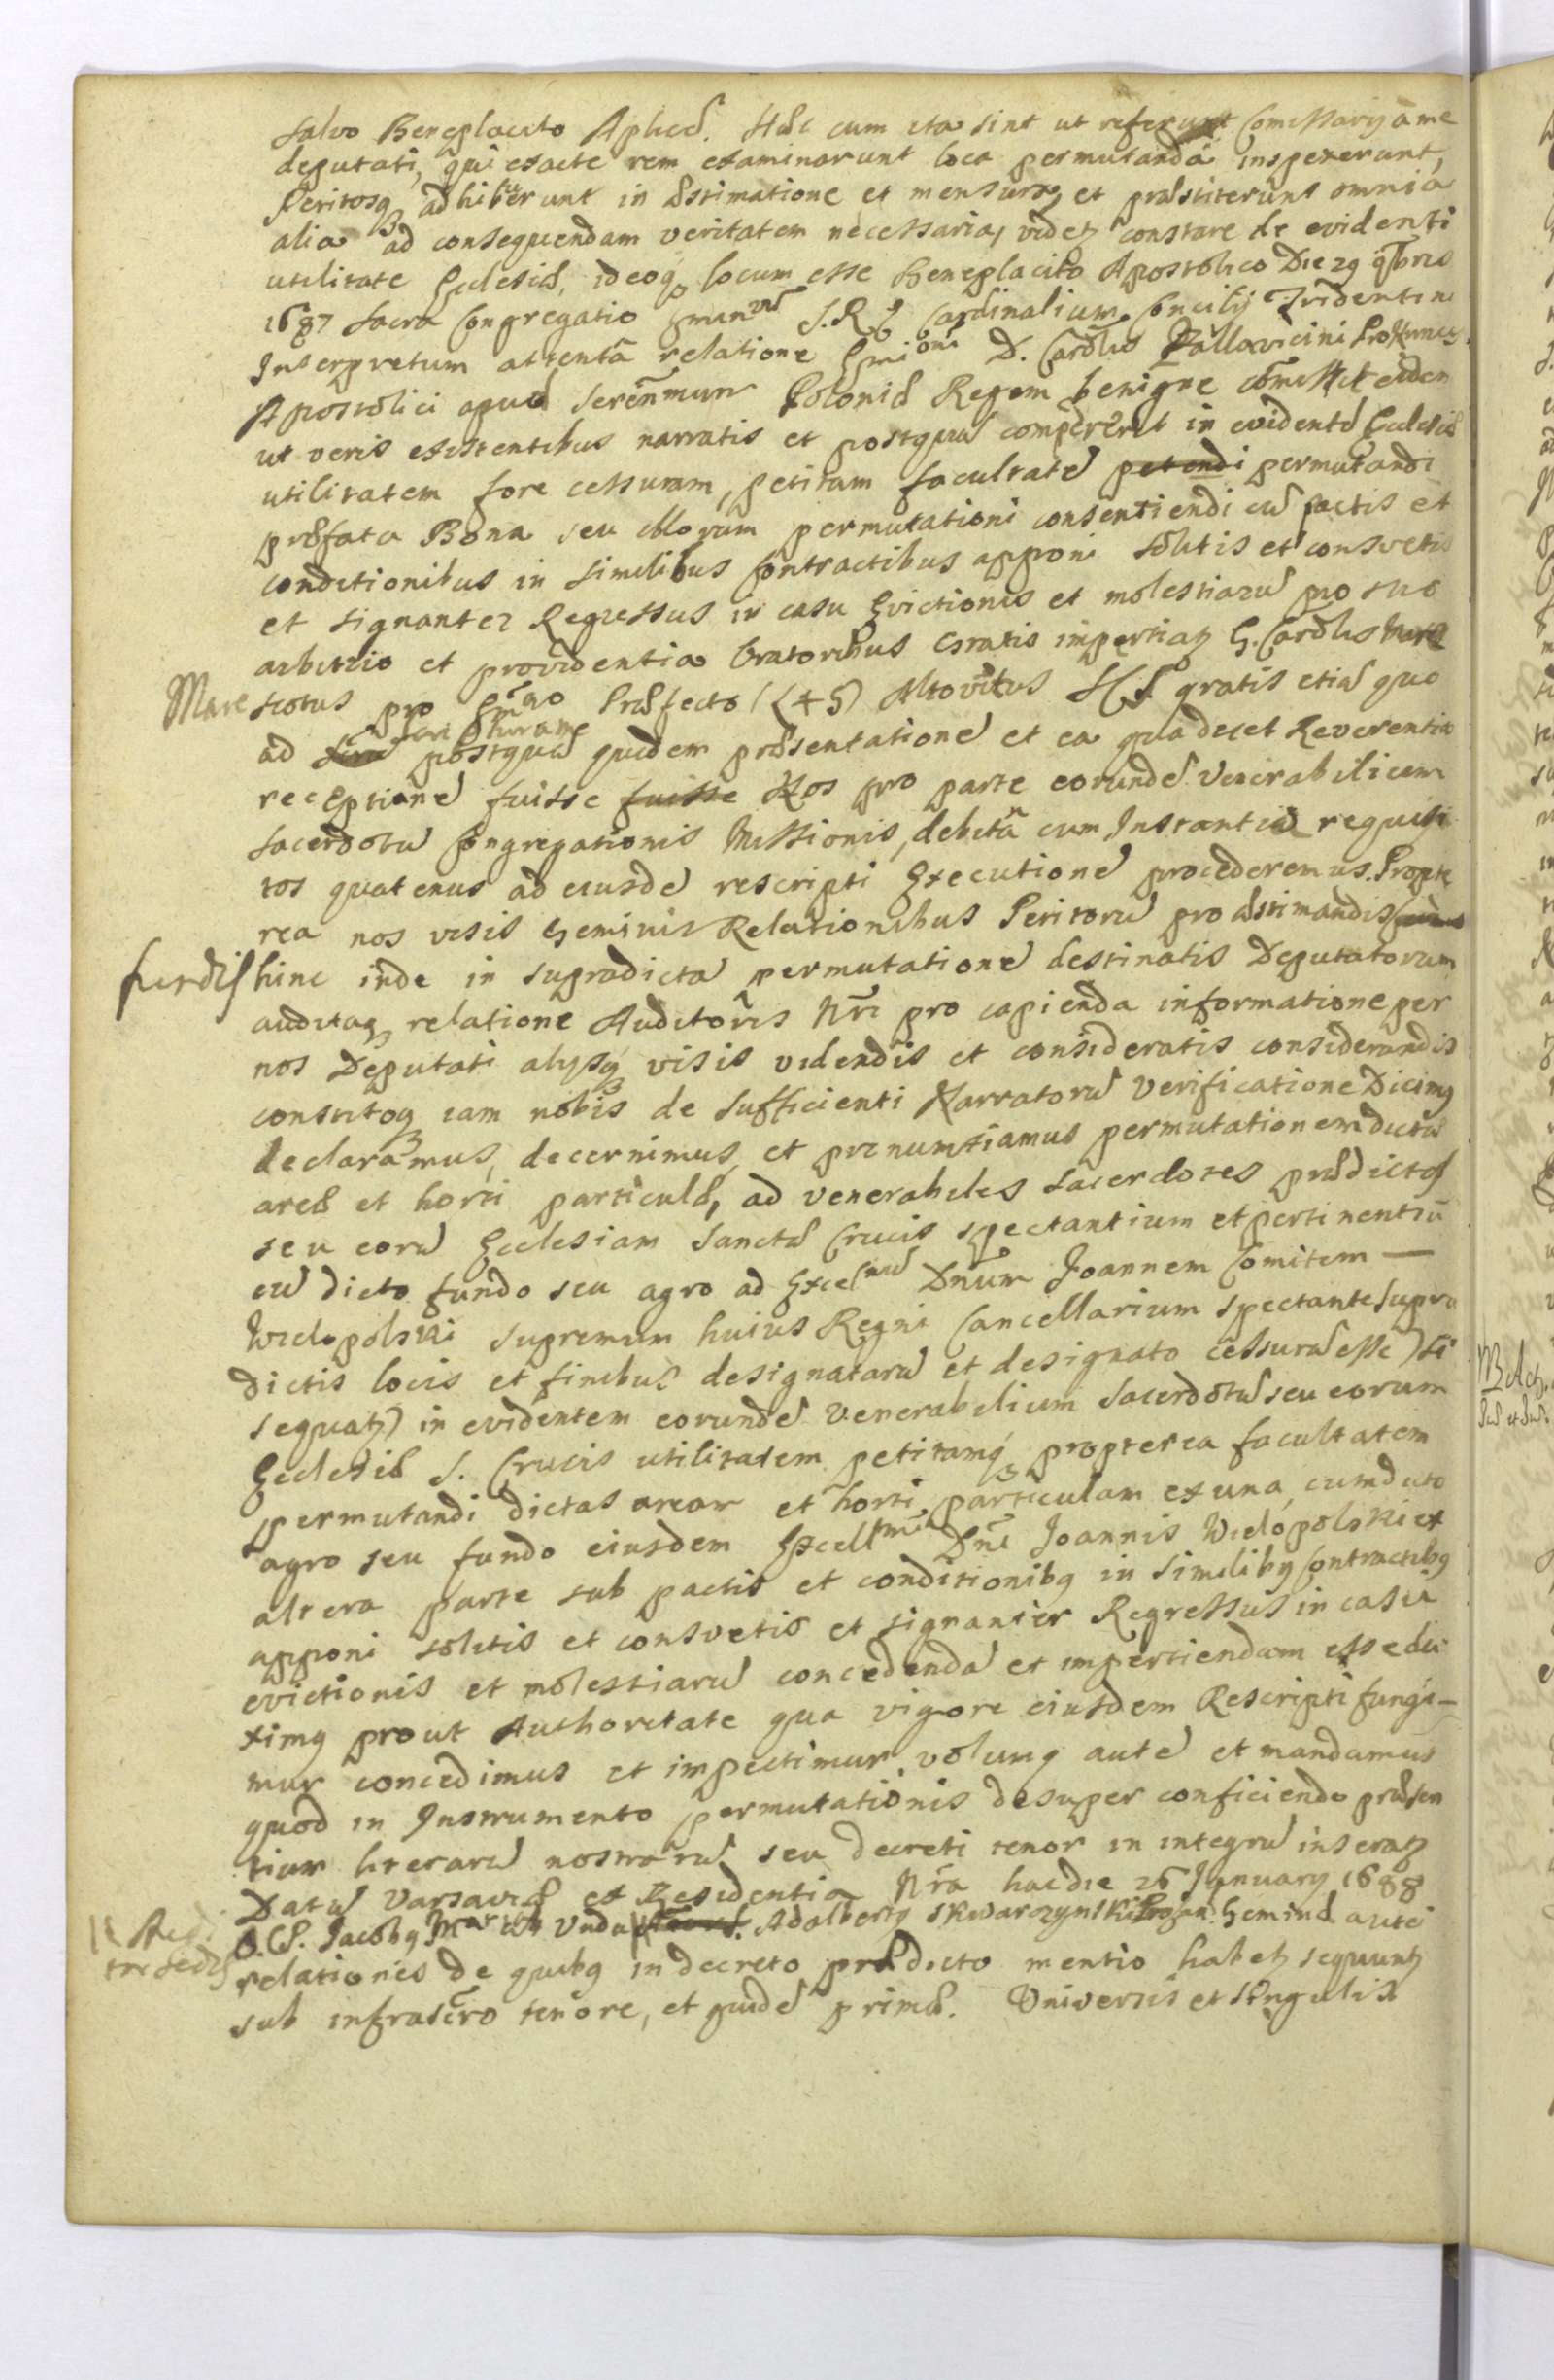 salvo Beneplacito Aplico. Hæc cum ita sint ut referunt Comissarij a me
deputati, qui exacte rem examinarunt loca permutanda inspexerunt,
Peritosq adhibuerunt in Æstimatione et mensura, et præstiterunt omnia
alia ad consequendam veritatem necessaria, videt constare de evidenti
utilitate Ecclesiæ, ideoq locum esse Beneplacito Apostolico Die 29 9bris
1687 Sacra Congregatio Emin S. R. E Cardinalium Concilij Tridentini
Interpretum attentâ relatione Emi D. Carolus Pallavicini Pro Nuncij
Apostolici apud Serenmum Poloniæ Regem benigne comisit eidem
ut veris existentibus narratis et postquam compererit in evidente Ecclesiæ
utilitatem fore cessuram, petitam facultatē petendi permutandi
præfata Bona seu illorum permutationi consentiendi cū pactis et
conditionibus in similibus Contractibus apponi solitis et consvetis
et signanter Regressus in casu Evictionis et molestiarū pro suo
arbitrio et providentia Oratoribus Gratis impertiat G. Carolus Mare
Mare scotus pro Emo Præfecto (L+S) Altovitus Gratis etiā quo
ad Scripturam postquā quidem præsentationē et ea qua decet Reverentia
receptionē fuisse fuisse Nos pro parte eorundē Venerabilium
Sacerdotū Congregationis Missionis, debitâ cum Instantia requisi
tos quatenus ad eiusdē rescripti Executionē procederemus. Propte
rea nos visis Geminis Relationibus Peritorū pro æstimandis
fundis hinc inde in supradicta permutationē destinatis Deputatorum
auditaq relatione Auditoris Nri pro capienda informatione per
nos Deputati alijsq visis videndis et consideratis considerandis
constitoq iam nobis de sufficienti Narratorū verificatione Dicimq
declaramus, decernimus, et pronuntiamus permutationem dictæ
areæ et horti particulæ, ad venerabiles Sacerdotes prædictos
seu eorū Ecclesiam Sanctæ Crucis spectantium et pertinentiū
cū dicto fundo seu agro ad Excel Dnum Joannem Comitem —
Wielopolski Supremum huius Regni Cancellarium spectante supra
dictis locis et finibus designatarū et designato cessurā esse) si
sequat) in evidentem eorundē Venerabilium Sacerdotū seu eorum
Ecclesiæ S. Crucis utilitatem petitamq propterea facultatem
permutandi dictas aream et horti particulam ex una, cum dicto
agro seu fundo eiusdem Excell Dni Joannis Wielopolski ex
altera parte sub pactis et conditionibq in similibq Contractibq
apponi solitis et consvetis et signanter Regressus in casu
evictionis et molestiarū concedendā et impertiendam esse du
ximq prout Authoritate qua vigore eiusdem Rescripti fungi-
mur concedimus et impertimur, volumq autē et mandamus
quod in Instrumento permutationis desuper conficiendo præsen
tium literarū nostrarū seu decreti tenor in integrū inserat
Datū Varsaviæ ex Residentia Nra hac die 26 January 1688
Jacobq Adalbertq Skwarczynski Geminæ autē
relationes de quibq in decreto prædicto mentio habet sequunt
sub infrascro tenore, et quidē primæ. Universis et singulis